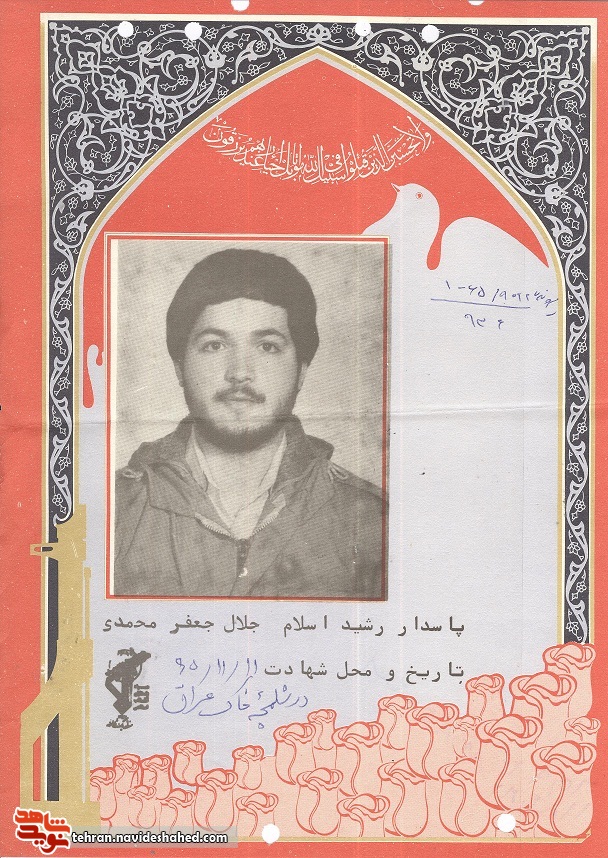 ولا تحسبن الذین قتلوا فی سبیل الله امواتا بل احیاء عند ربهم یرزقون
۱-۶۵/۹۰۹۲
۹۳۶
پاسدار رشید اسلام جلال جعفر محمدی
تاریخ و محل شهادت ۶۵/۱۱/۲۱
در شلمچه خاک عراق
شاهد
نوید
tehran.navideshahed.com